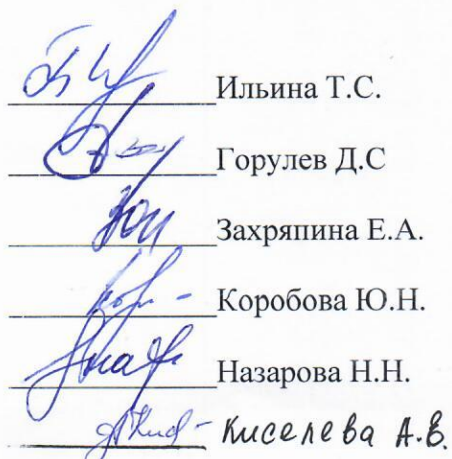 Ильина Т.С.
Горулев Д.С
Захряпина Е.А.
Коробова Ю.Н.
Назарова Н.Н.
Киселева А.В.